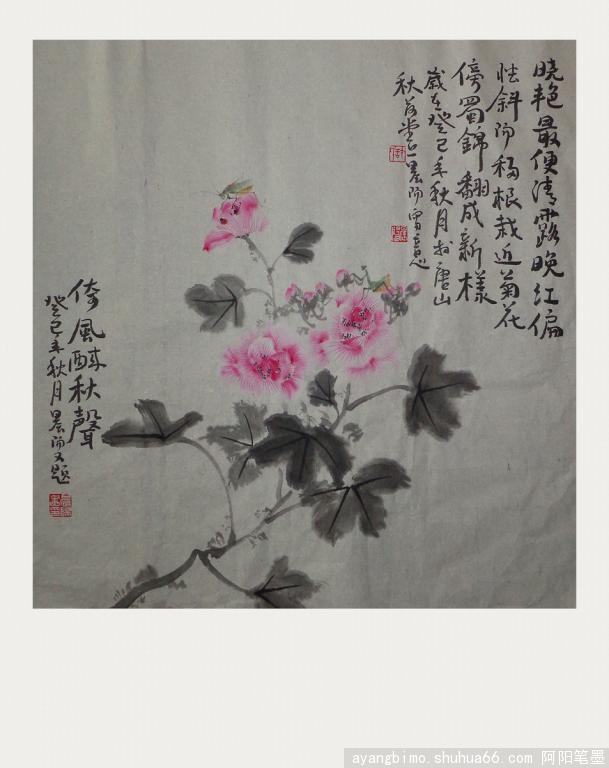 晓艳最便清露晚红偏
怯斜阳移根栽近菊花
傍蜀錦翻成新樣
歲在癸巳年秋月於唐山
秋
倚風醉秋聲
癸巳年秋月晨阳又题
ayangbimo.shuhua66.com 阿阳笔墨